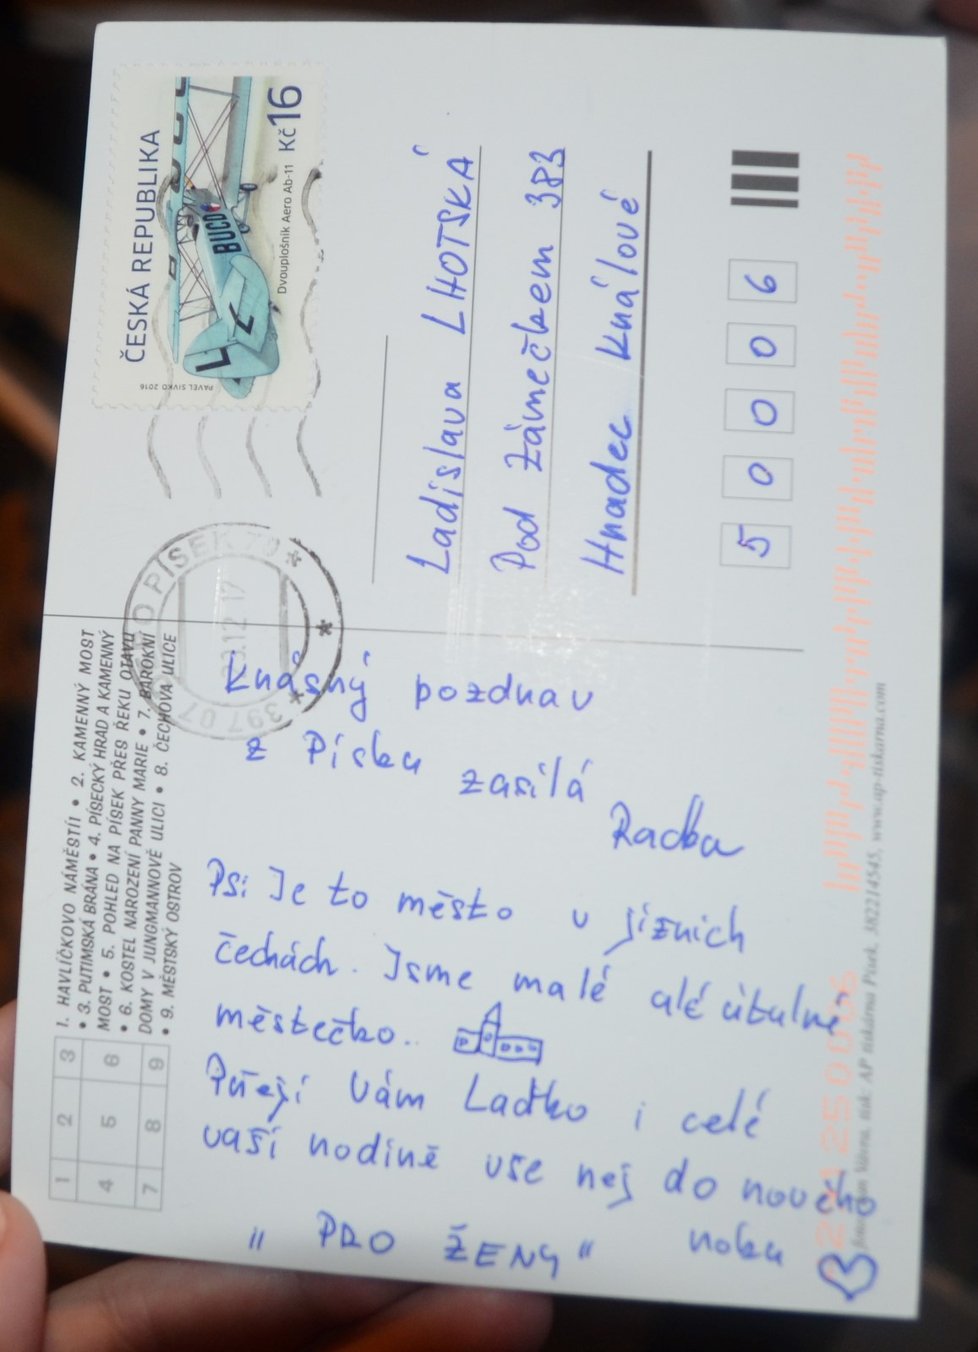 1. HAVLÍČKOVO NÁMĚSTÍ • 2. KAMENNÝ MOST
• 3. PUTIMSKÁ BRÁNA • 4. PÍSECKÝ HRAD A KAMENNÝ
MOST • 5. POHLED NA PÍSEK PŘES ŘEKU OTAVU
• 6. KOSTEL NAROZENÍ PANNY MARIE • 7. BAROKNÍ
DOMY V JUNGMANNOVĚ ULICI • 8. ČECHOVA ULICE
• 9. MĚSTSKÝ OSTROV
1 2 3
4 5 6
7 8 9
Krásný pozdrav
z Písku zasílá
Radka
Ps: Je to město v jížních
čechách. Jsme malé alé útulné
městečko.
Přeji Vám Laďko i celé
vaší rodině vše nej do nového
roku
" PRO ŽENY "
ČESKÁ REPUBLIKA
Kč 16
Dvouplošník Aero Ab-11
PAVEL SIVKO 2016
L-BUCD
PÍSEK 70
397 07
12 17
Ladislava LHOTSKÁ
Pod Zámečkem 383
Hradec Králové
5 0 0 0 6
tisk: AP tiskárna Písek, 382214545, www.ap-tiskarna.com